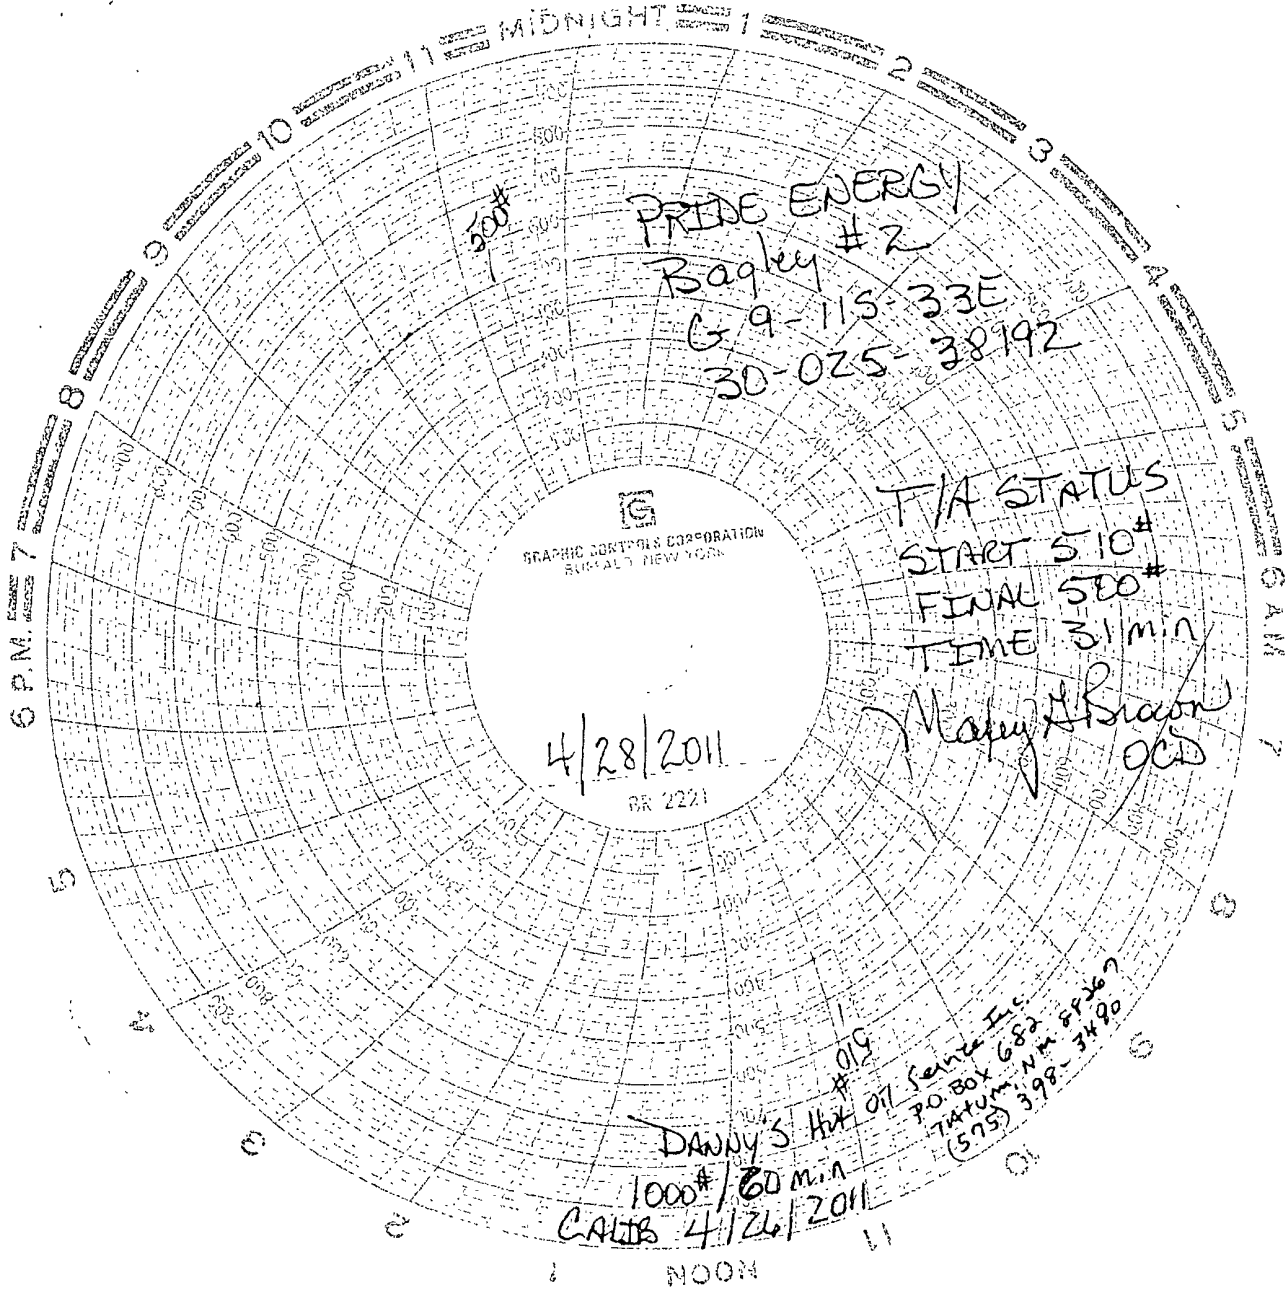 MIDNIGHT
1
2
3
4
5
6 AM
7
8
9
10
11
NOON
1
2
3
4
5
6 P.M.
7
8
9
10
11
500#
PRIDE ENERGY
Bagley #2
G-9-11S-33E
30-025-38192
T/A STATUS
START 510#
FINAL 500#
TIME 31 min
OCD
G
GRAPHIC CONTROLS CORPORATION
BUFFALO NEW YORK
4/28/2011
BR 2221
510#
DANNY'S Hot Oil Service Inc.
P.O. BOX 682
TATUM, NM 88267
(575) 398-3490
1000#/60 min
CALIB 4/26/2011